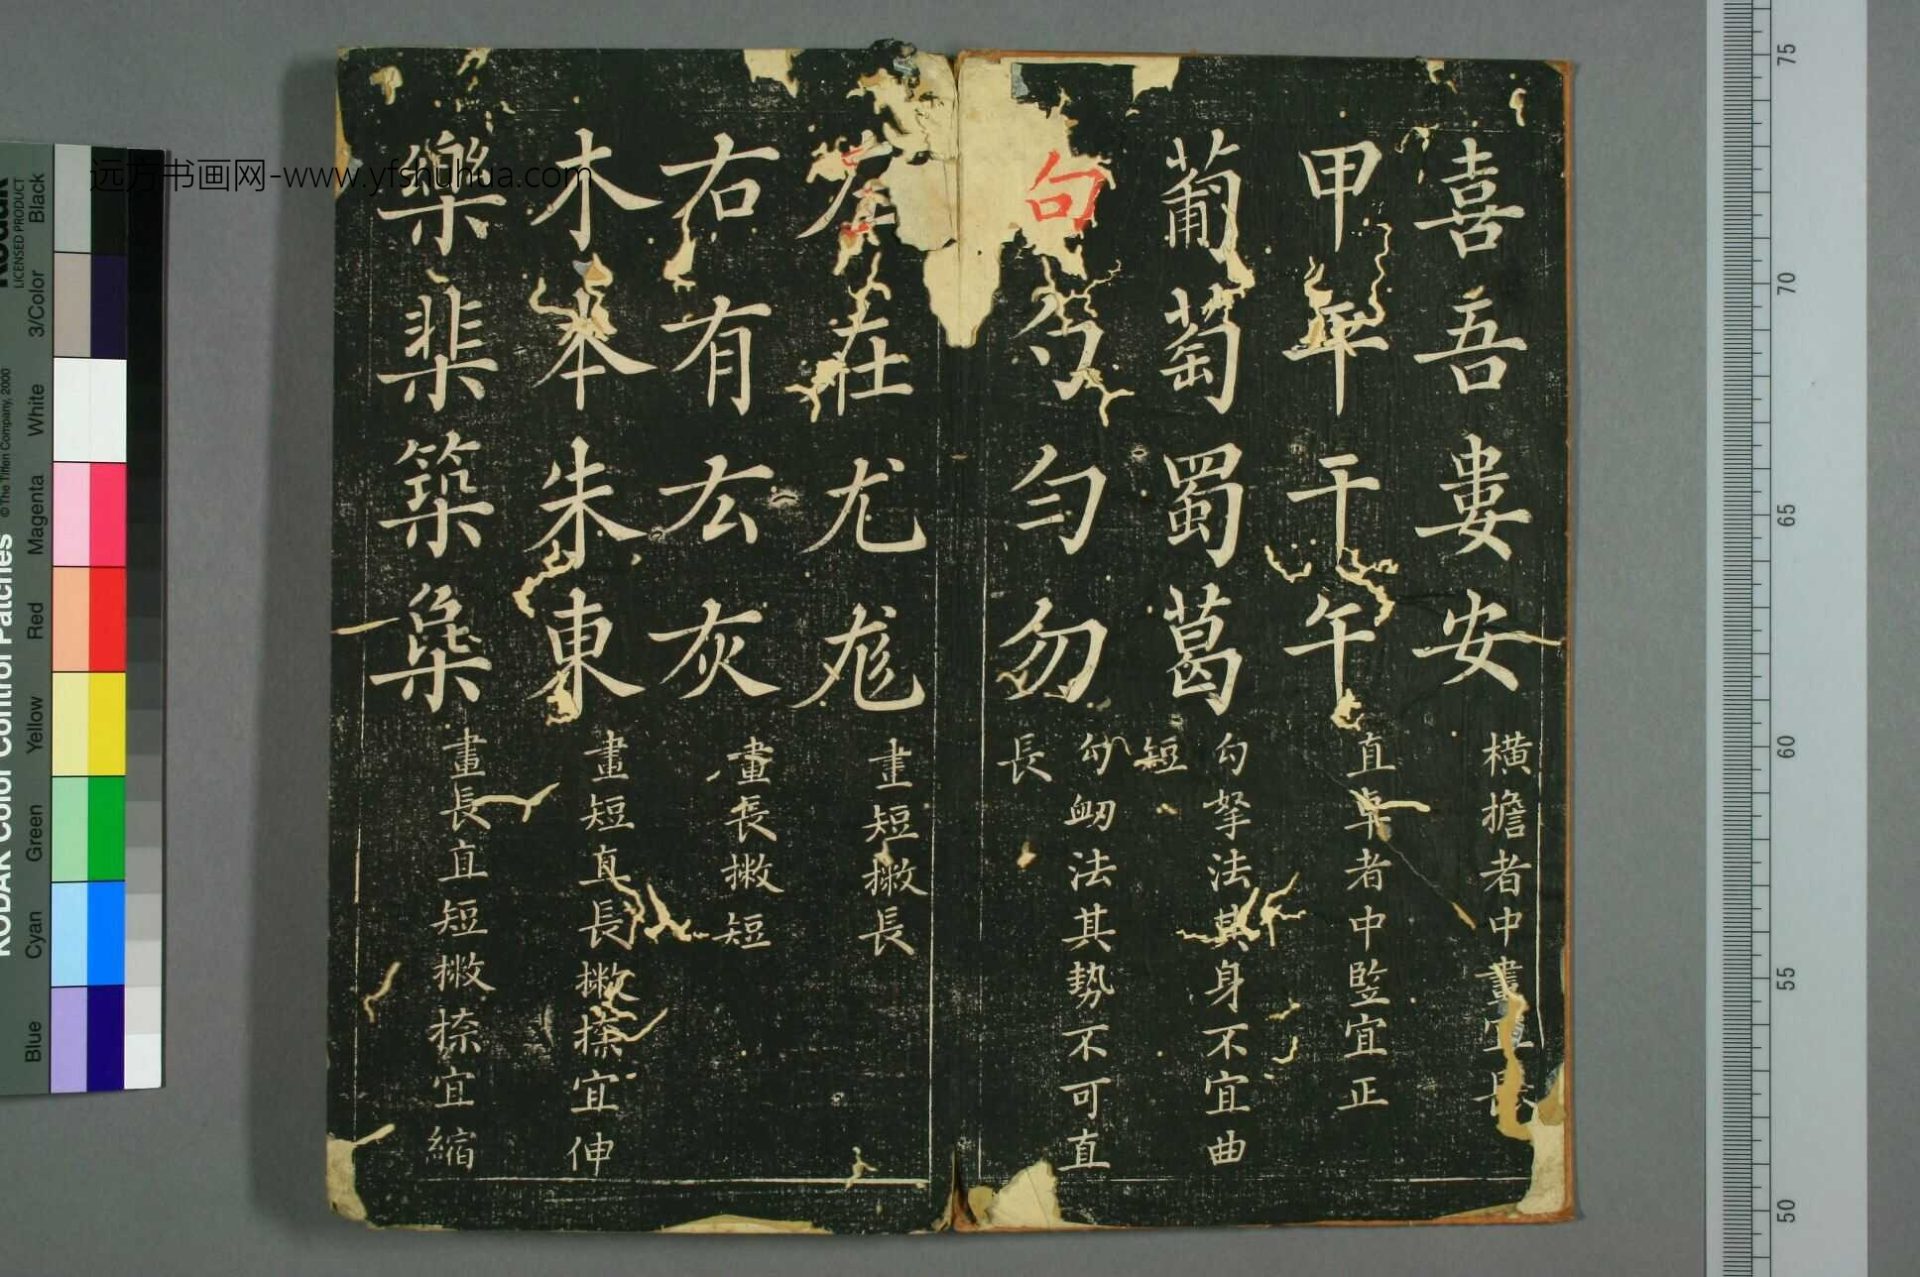 喜吾婁安
橫擔者中畫宜長
甲平干午
直卓者中竪宜正
葡萄蜀葛
勾拏法其身不宜曲
短
句勺勻勿
勾衂法其勢不可直
長
左在尤尨
畫短撇長
右有厷灰
畫長撇短
木本朱東
畫短直長撇捺宜伸
樂棐築
畫長直短撇捺宜縮
远方书画网-www.yfshuhua.com
KODAK Color Control Patches
© The Tiffen Company, 2000
Kodak
LICENSED PRODUCT
Blue Cyan Green Yellow Red Magenta White 3/Color Black
75
70
65
60
55
50